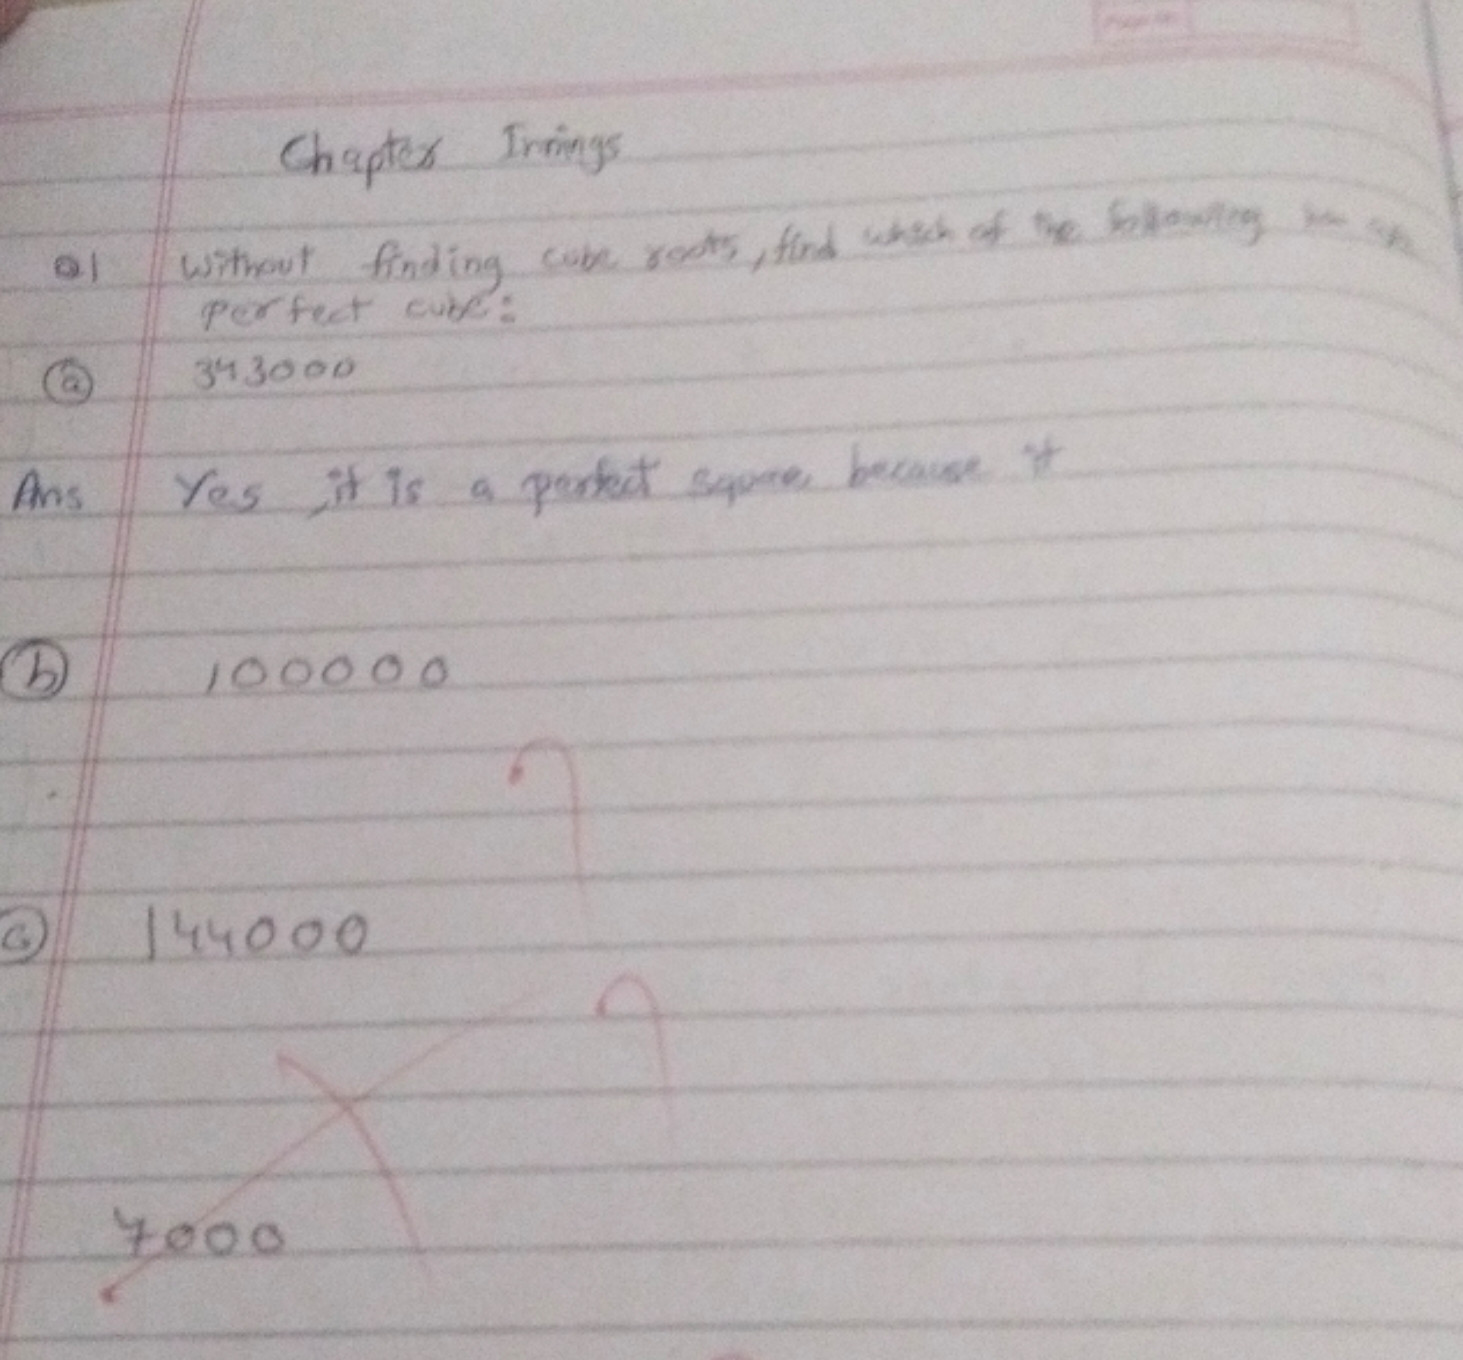 Chapter Innings
Q1 Without finding cube roots, find which of the following
perfect cube:
(a) 343000
Ans Yes, it is a perfect square because it
(b) 100000
(c) 144000
7000